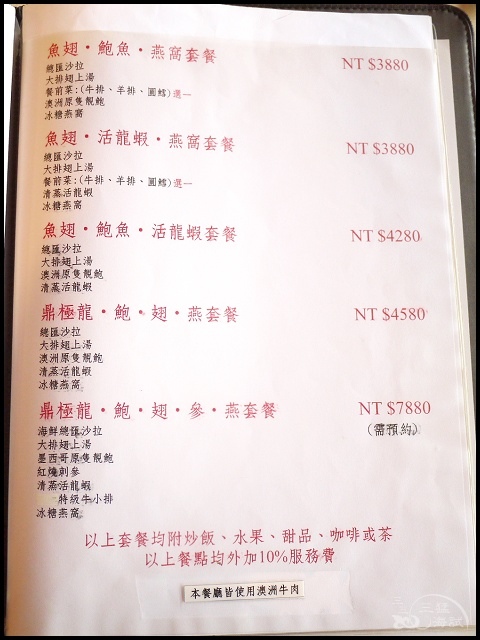 魚翅・鮑魚・燕窩套餐 NT $3880
總匯沙拉
大排翅上湯
餐前菜:(牛排、羊排、圓鱈)選一
澳洲原隻靚鮑
冰糖燕窩
魚翅・活龍蝦・燕窩套餐 NT $3880
總匯沙拉
大排翅上湯
餐前菜:(牛排、羊排、圓鱈)選一
清蒸活龍蝦
冰糖燕窩
魚翅・鮑魚・活龍蝦套餐 NT $4280
總匯沙拉
大排翅上湯
澳洲原隻靚鮑
清蒸活龍蝦
鼎極龍・鮑・翅・燕套餐 NT $4580
總匯沙拉
大排翅上湯
澳洲原隻靚鮑
清蒸活龍蝦
冰糖燕窩
鼎極龍・鮑・翅・參・燕套餐 NT $7880
(需預約)
海鮮總匯沙拉
大排翅上湯
墨西哥原隻靚鮑
紅燒刺參
清蒸活龍蝦
特級牛小排
冰糖燕窩
以上套餐均附炒飯、水果、甜品、咖啡或茶
以上餐點均外加10%服務費
本餐廳皆使用澳洲牛肉